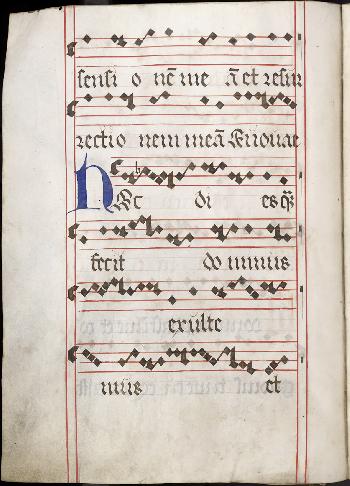 sensi o nē me ā et resur
rectio nem meā Euouae
Hec di es q̄
fecit do minus
exulte
mus et